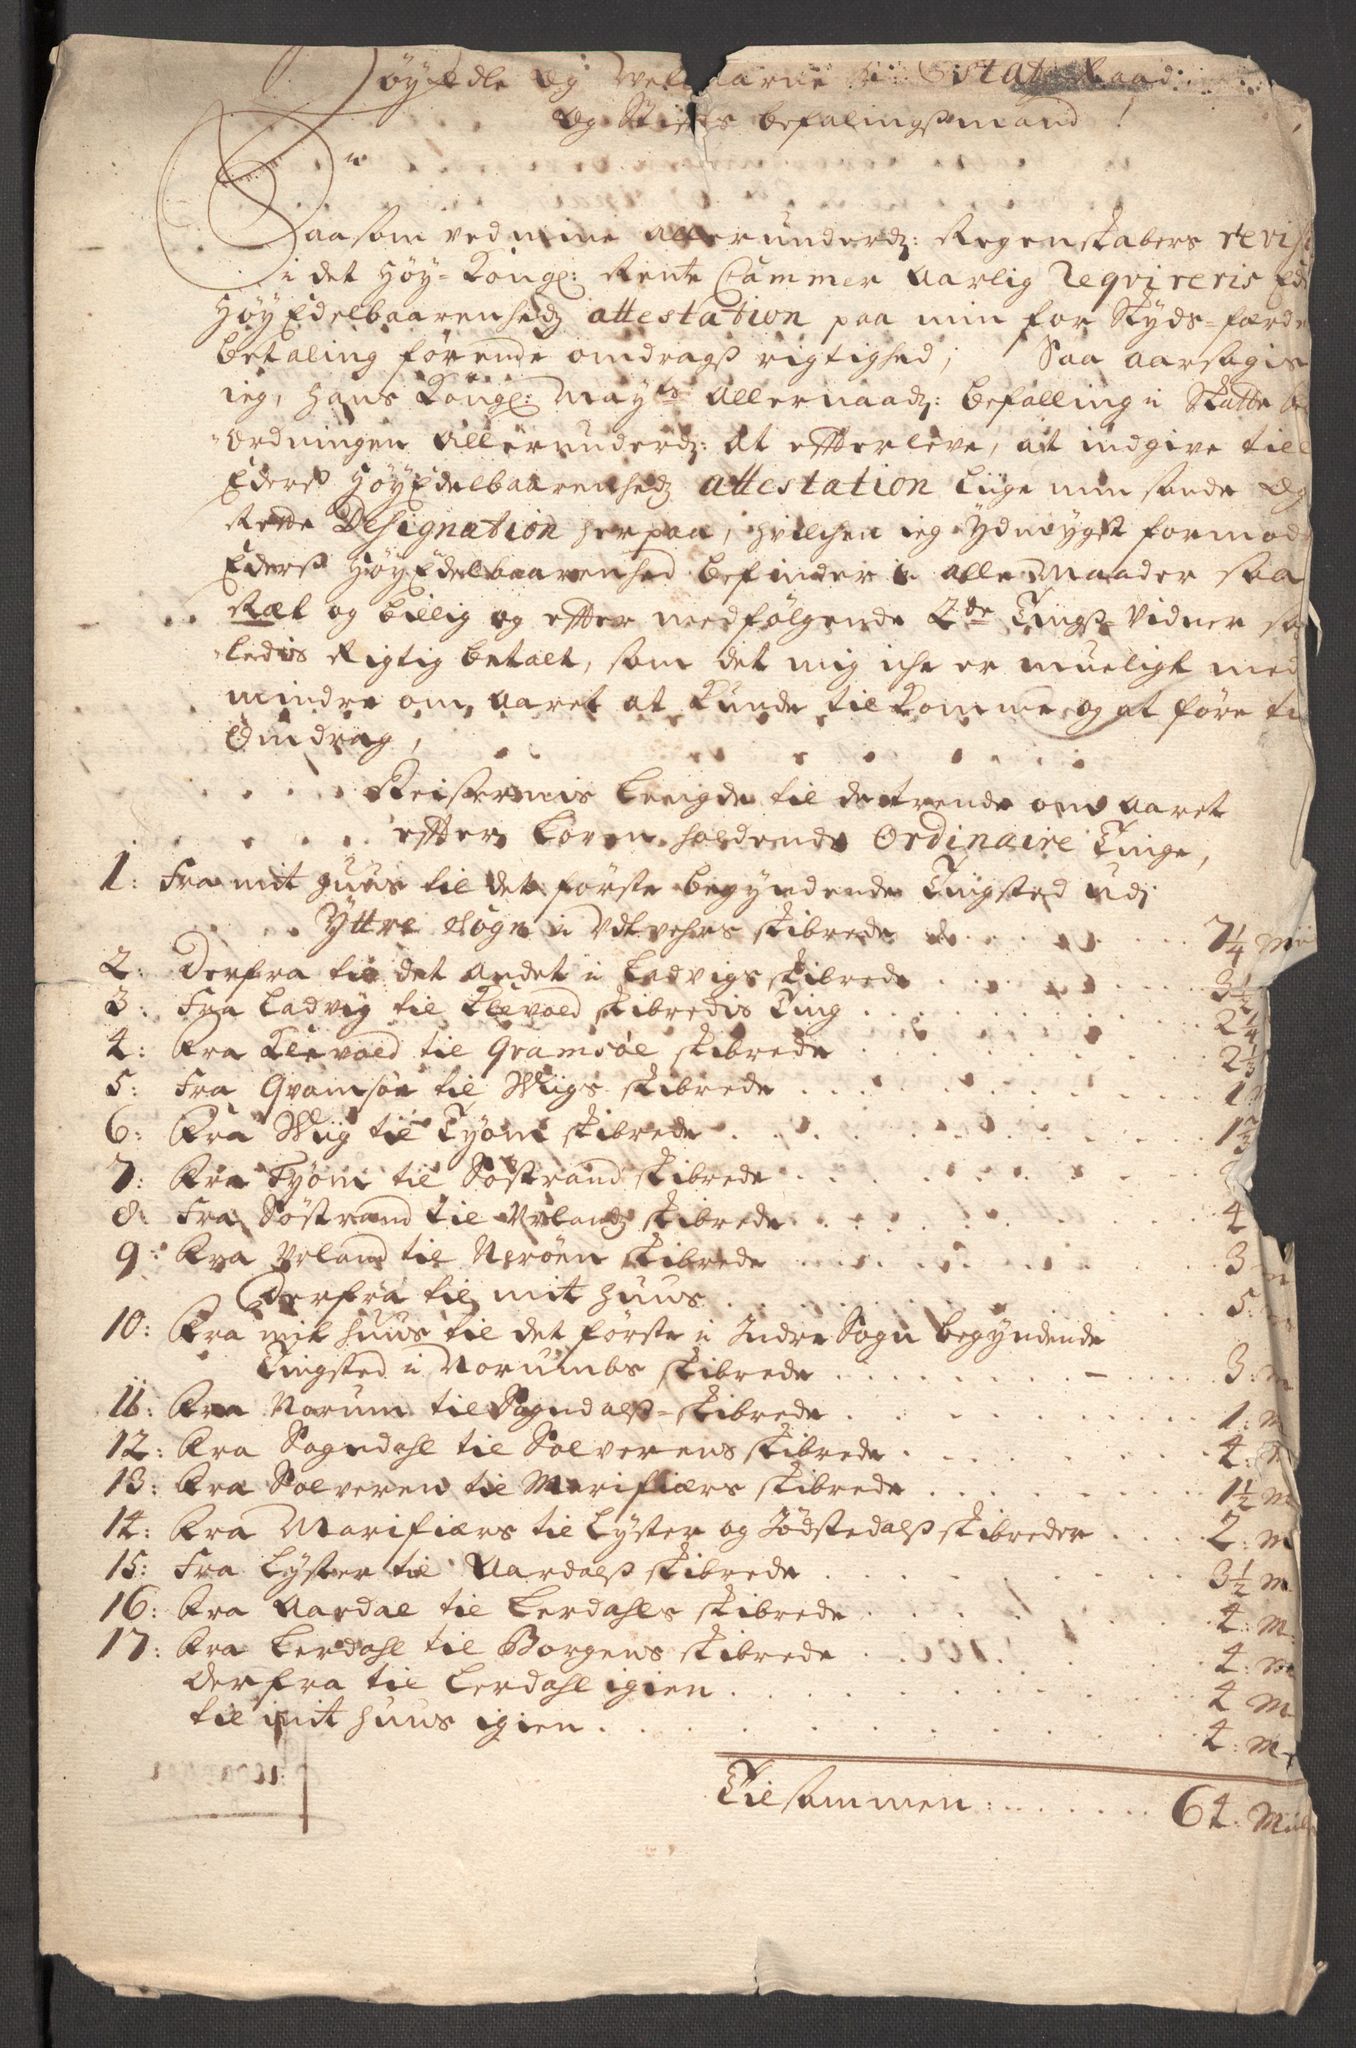 Høyædle og Welbaarne Hr Estats Raad
og Stifts befalingsmand!
Saasom ved mine allerunderd: Regenskabers revis
i det Høy-Kongl: Rente Cammer aarlig Reqvireris Ed
HøyEdelbaarenhedz attestation paa min for Skyds-færds
betaling førende omdragß rigtighed, Saa aarsagis
ieg, Hans Kongl: Mayts allernaadz: befalling i Skatte
ordningen allerunderd: at efterleve, at indgive till
Ederß HøyEdelbaarenhedz attestation Liige min sande og
Rette Designation herpaa, hvilchen ieg ydmygst formod
Ederß HøyEdelbaarenhed befinder i alle Maader saa
Ræt og billig og efter medfølgende 2de Tingß-Vidner saa
ledis Rigtig betalt, som det mig iche er mueligt med
mindre om aaret at kunde tilkomme og at føre ti
omdrag,
Reisernis Lengde til de trende om aaret
efter Loven holdende Ordinaire Tinge,
1: Fra mit Huus til det første begyndende Tingsted udj
Yttre Sogn i Udvehrs skibrede . . . 7 1/4 Mi
2: Derfra til det andet i Ladvigs skibrede . . . 3 1/2
3: Fra Ladvig til Klevold skibredis Ting . . . 2 1/4
4: Fra Klevold til Qvamsøe skibrede . . . 2 1/2
5: Fra Qvamsøe til Wiigs skibrede . . . 1
6: Fra Wiig til Tyom skibrede . . . 1 1/2
7: Fra Tyom til Søstrand skibrede . . .
8: Fra Søstrand til Urlandz skibrede . . . 4
9: Fra Urland til Nerøen skibrede . . . 3 m
Derfra til mit huus . . . 5: m
10: Fra mit huus til det første i Indre Sogn begyndende
Tingsted i Norumbs skibrede . . . 3: m
11: Fra Norum til Sogndalß-skibrede . . . 1: m
12: Fra Sogndahl til Solverens skibrede . . . 4: M
13: Fra Solveren til Marifiærs skibrede . . . 1 1/2 M
14: Fra Marifiærs til Lyster og Jødstedalß skibreder . . . 2: M
15: Fra Lyster til Aardalß skibrede . . . 3 1/2 M
16: Fra Aardal til Lerdahls skibrede . . . 4: M:
17: Fra Lerdahl til Borgens skibrede . . . 4: M
Derfra til Lerdahl igien . . . 4 M
til mit huus igien . . . 4: M
Tilsammen: . . . 64: Miil